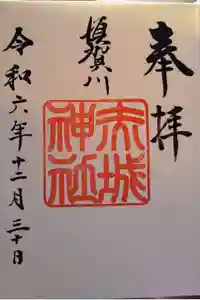 奉拝
賀川
赤城
神社
令和六年十二月三十日